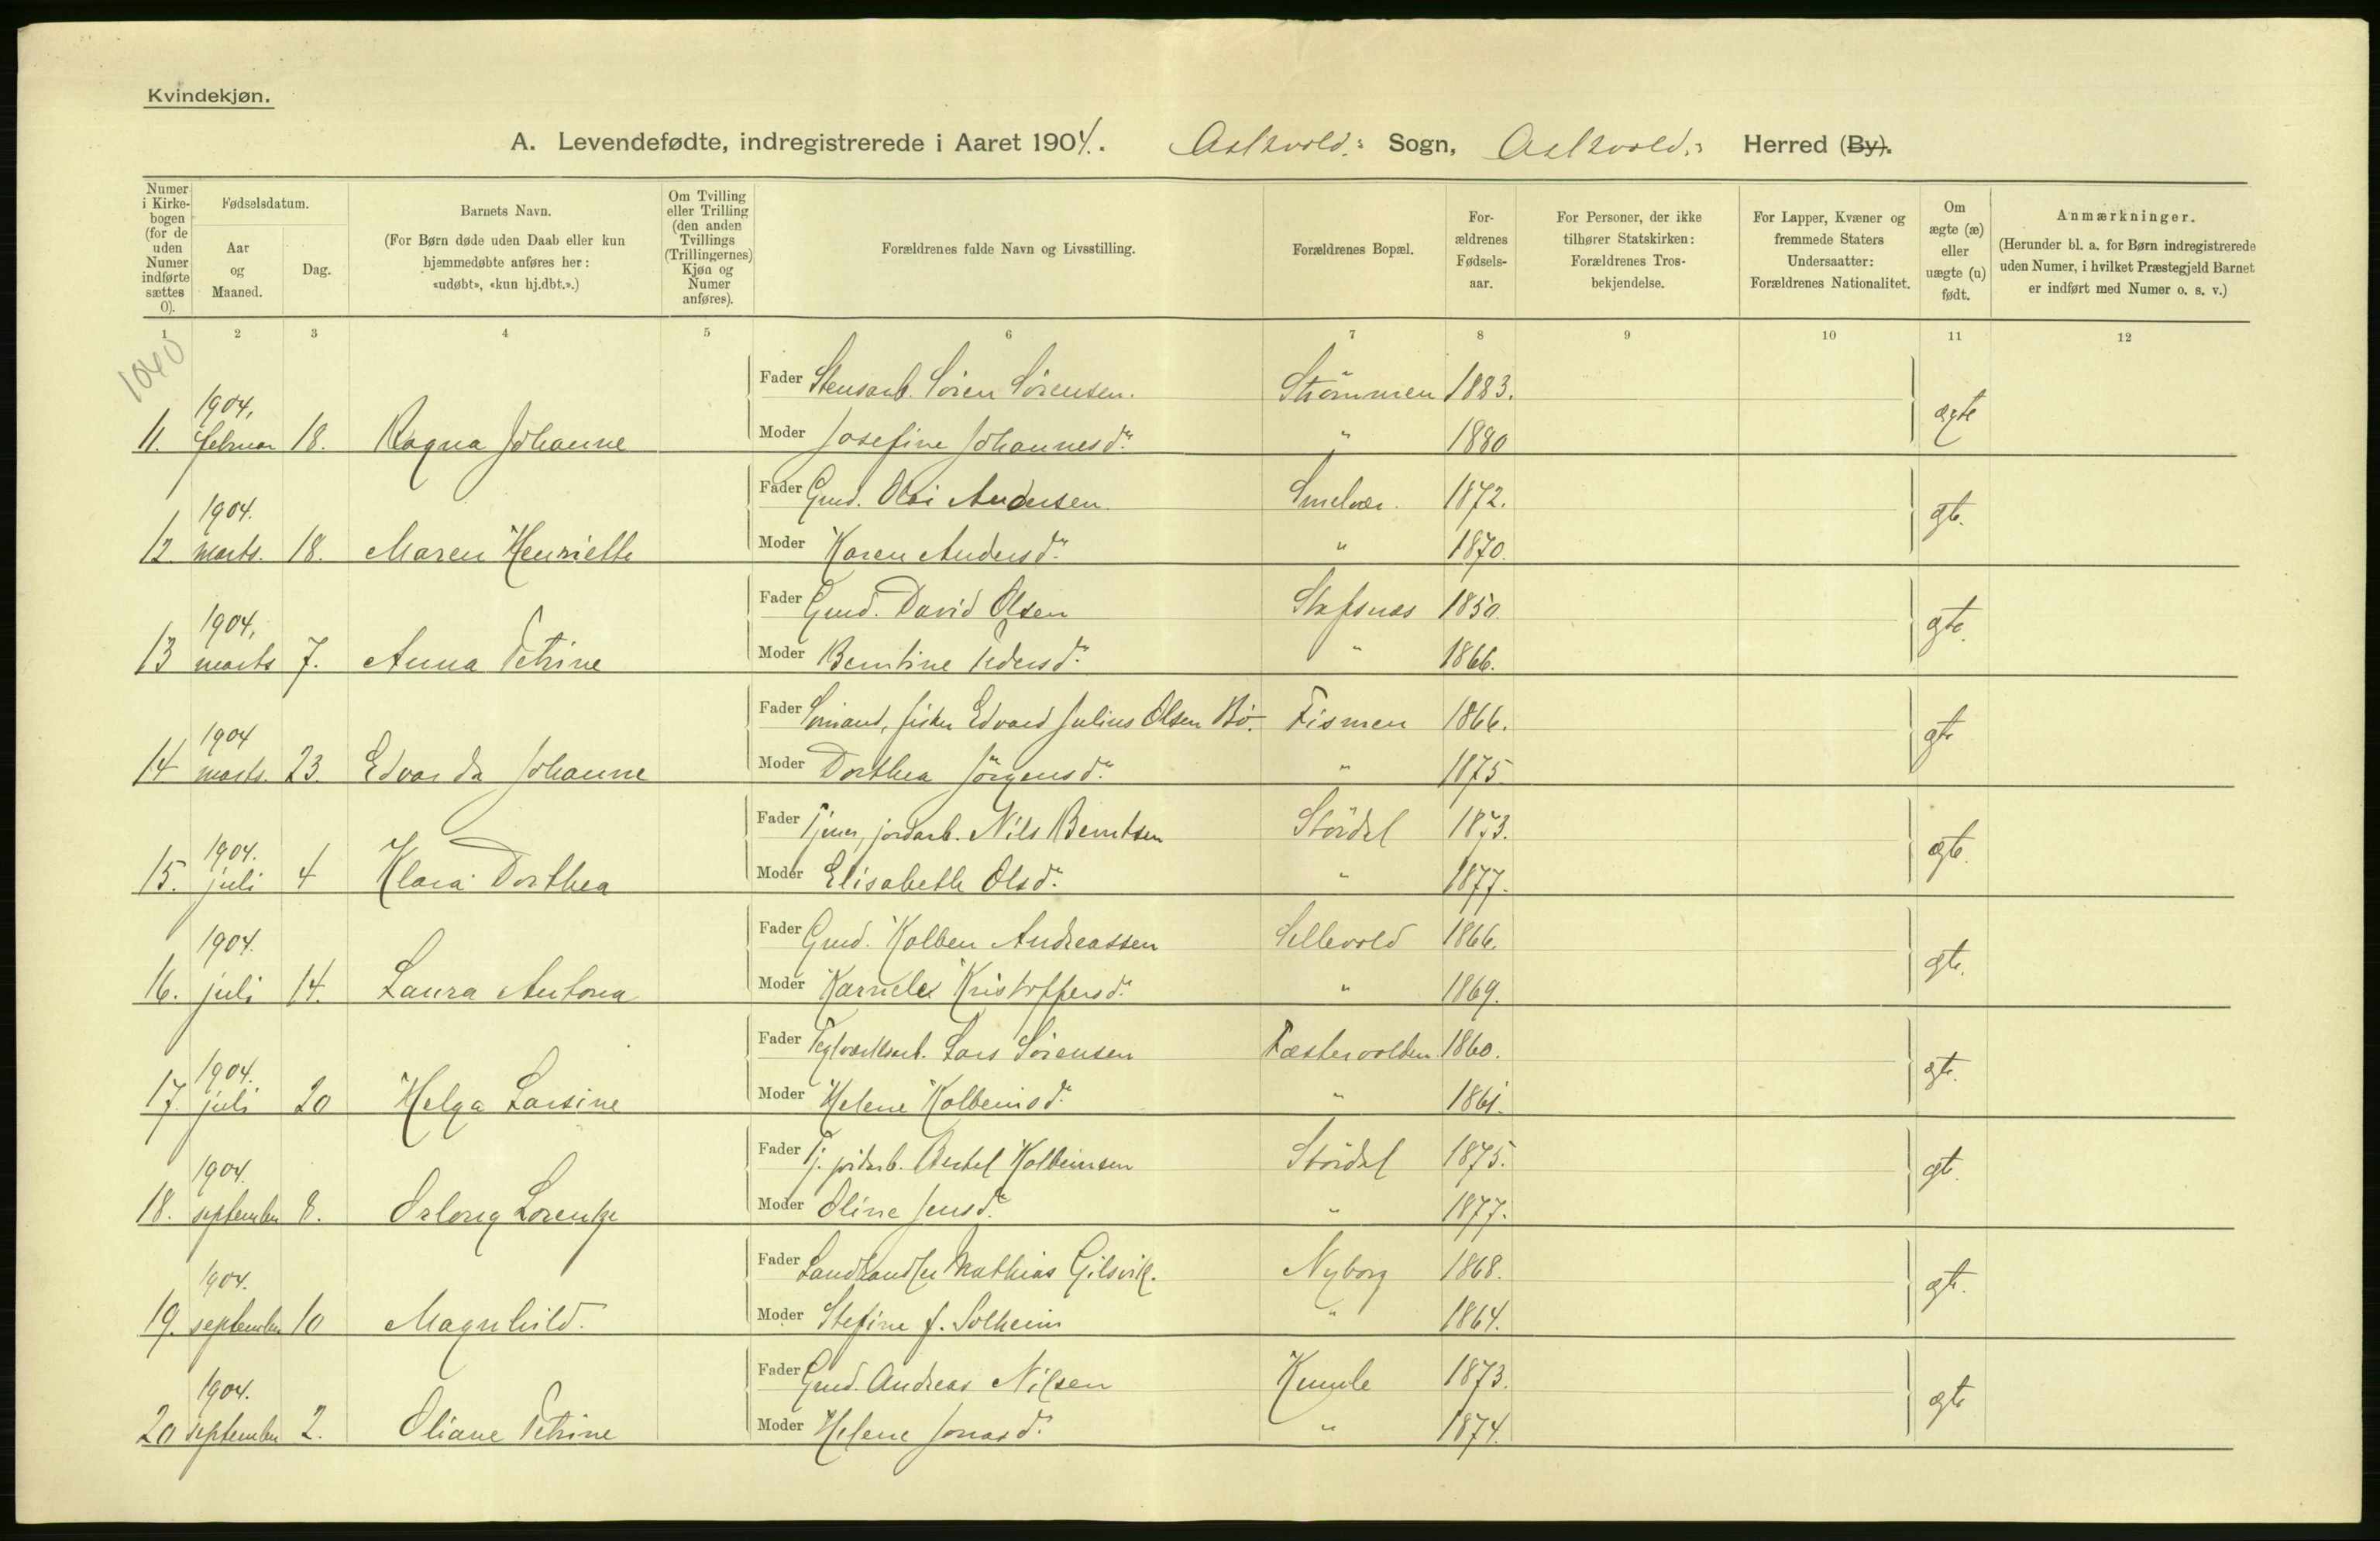 Kvindekjøn.
A. Levendefødte, indregistrerede i Aaret 1904. Askvold: Sogn, Askvold: Herred (By).
Numer i Kirkebogen (for de uden Numer indførte sættes 0).
Fødselsdatum.
Aar og Maaned.
Dag.
Barnets Navn.
(For Børn døde uden Daab eller kun hjemmedøbte anføres her: «udøbt», «kun hj.dbt.».)
Om Tvilling eller Trilling (den anden Tvillings (Trillingernes) Kjøn og Numer anføres).
Forældrenes fulde Navn og Livsstilling.
Forældrenes Bopæl.
Forældrenes Fødselsaar.
For Personer, der ikke tilhører Statskirken: Forældrenes Trosbekjendelse.
For Lapper, Kvæner og fremmede Staters Undersaatter: Forældrenes Nationalitet.
Om ægte (æ) eller uægte (u) født.
Anmærkninger.
(Herunder bl. a. for Børn indregistrerede uden Numer, i hvilket Præstegjeld Barnet er indført med Numer o. s. v.)
1 2 3 4 5 6 7 8 9 10 11 12
1040
Fader Stensarb. Sören Sörensen. Strömmen 1883.
1904, ægte
11. februar 18. Ragna Johanne Moder Josefine Johannesdr. " 1880
Fader Gmd. Olai Andersen. Smelvær. 1872.
1904. gte.
12. marts. 18. Maren Henriette Moder Karen Andersdr. " 1870.
Fader Gmd. David Olsen Stafsnes 1850.
1904, gte.
13 marts 7. Anna Petrine Moder Berntine Pedersdr. " 1866.
Fader Sömand, fisker Edvard Julius Olsen Bö. Tismen 1866.
1904 gte
14 marts. 23. Edvarda Johanne Moder Dorthea Jörgensdr. " 1875
Fader Tjener, jordarb. Nils Berntsen Stördal 1873.
1904. gte.
15. juli 4 Klara Dorthea Moder Elisabeth Olsdr. " 1877.
Fader Gmd. Kolben Andreassen Sellevold 1866.
1904. gte.
16. juli 14. Laura Antona Moder Karnele Kristoffersdr. " 1869.
Fader Teglværksarb. Lars Sörensen Tæstevolden 1860.
1904. gte.
17. juli 20 Helga Larsine Moder Helene Kolbeinsdr. " 1861.
Fader Tj. jordarb. Bertel Kolbeinsen Stördal 1875.
1904. gte.
18. september 8. Lorentze Moder Oline Jensdr. " 1877.
Fader Landhandler Mathias Gilsvik. Nyborg 1868.
1904. gte.
19. september 10 Magnhild. Moder Stefine f. Solheim " 1864.
Fader Gmd. Andreas Nilsen Kumle 1873.
1904. gte
20 september 2. Oliane Petrine Moder Helene Jonasdr. " 1874.